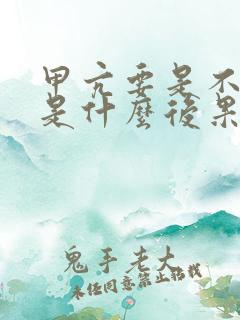 甲亢要是不
是什麼後果
鬼手老大
未经同意禁止搭载